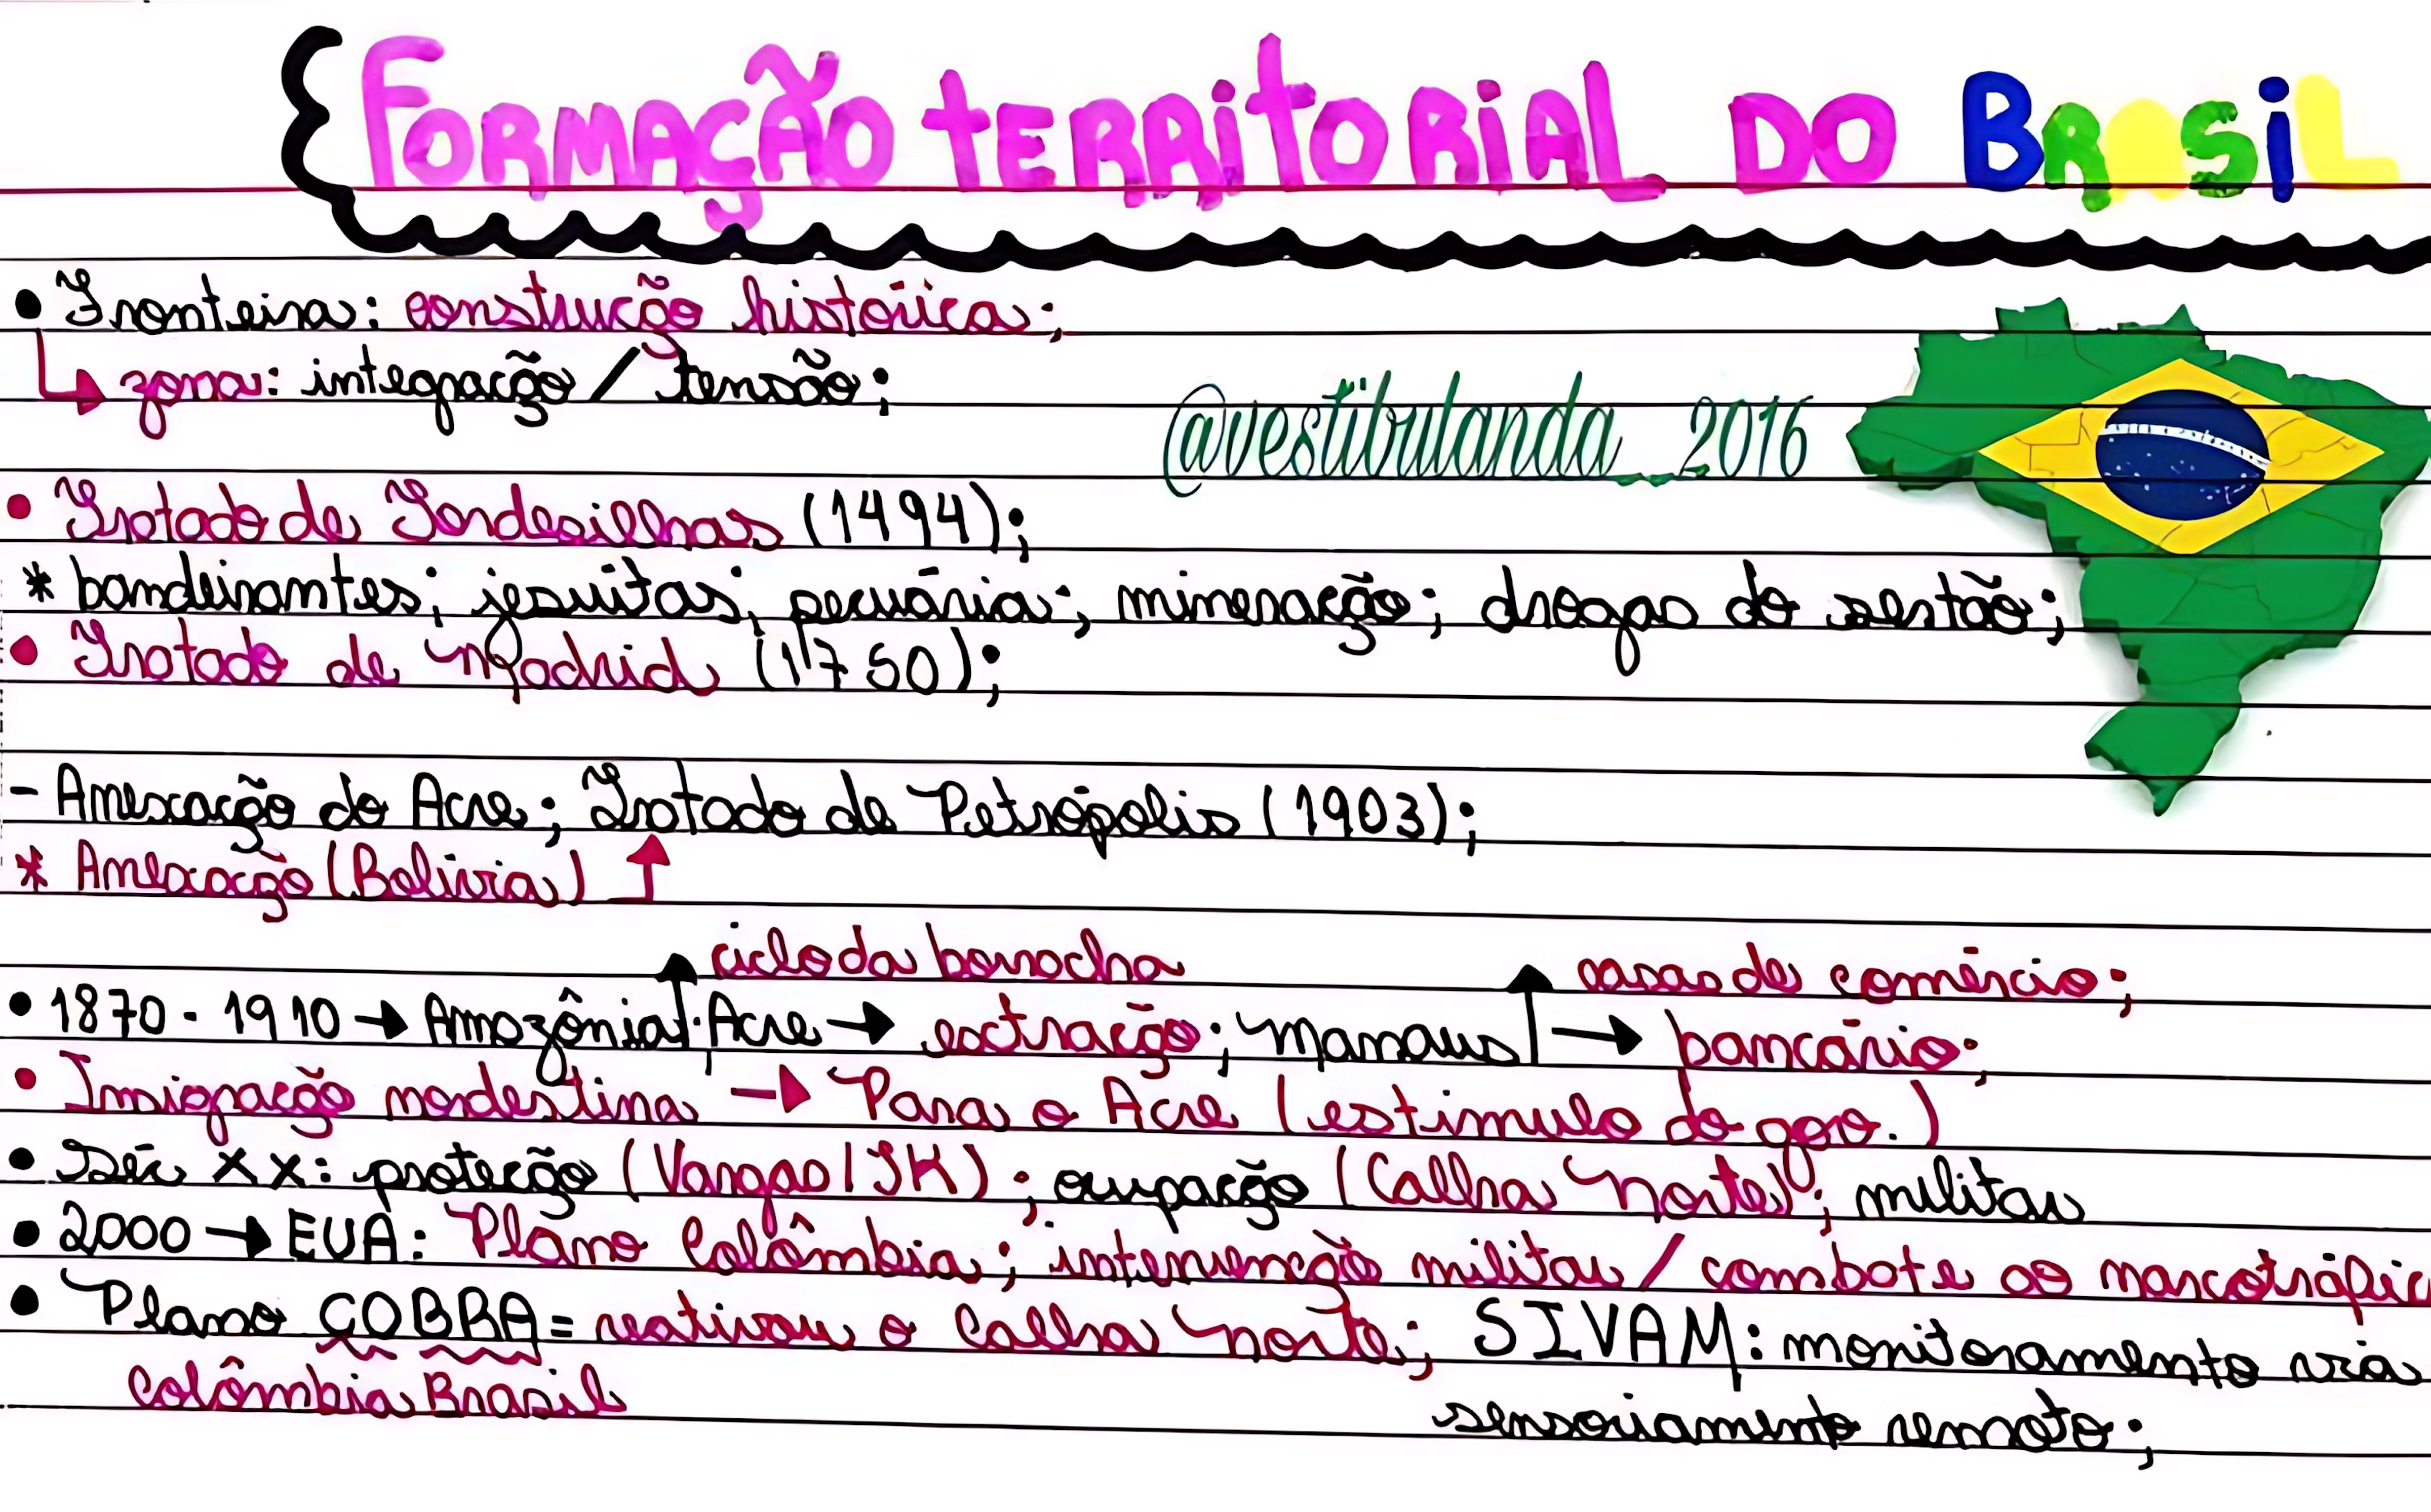 Formação territorial do Brasil
• Fronteira: construção histórica;
↳ zona: integração / tensão;
@vestibulanda_2016
• Tratado de Tordesilhas (1494);
* bandeirantes; jesuítas; pecuária; mineração; drogas do sertão;
• Tratado de Madrid (1750);
- Anexação do Acre; Tratado de Petrópolis (1903);
* Anexação (Bolívia) ↑
ciclo da borracha casas de comércio;
• 1870 - 1910 → Amazônia: Acre → extração; Manaus → bancário;
• Imigração nordestina → Para o Acre (estímulo do gov.)
• Séc XX: proteção (Vargas/JK); ocupação (Calha Norte); militar
• 2000 → EUA: Plano Colômbia; intervenção militar / combate ao narcotráfic
• Plano COBRA = reativou o Calha Norte; SIVAM: monitoramento via
Colômbia Brasil
sensoriamento remoto;